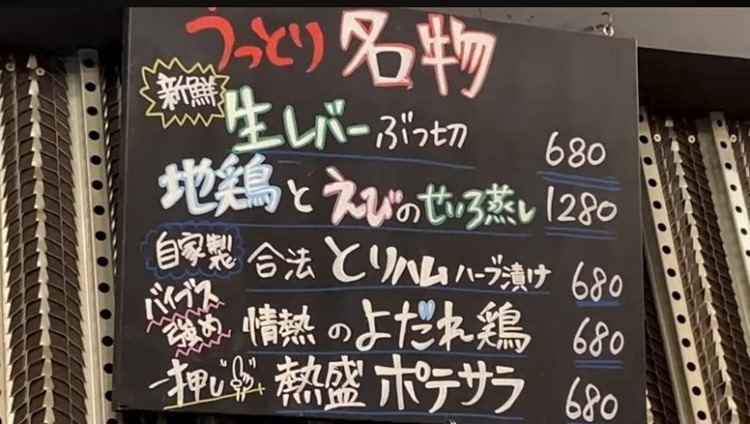 うっとり名物
新鮮
生レバーぶつ切 680
地鶏とえびのせいろ蒸し 1280
自家製 合法とりハムハーブ漬け 680
バイブス強め 情熱のよだれ鶏 680
一押し 熱盛ポテサラ 680